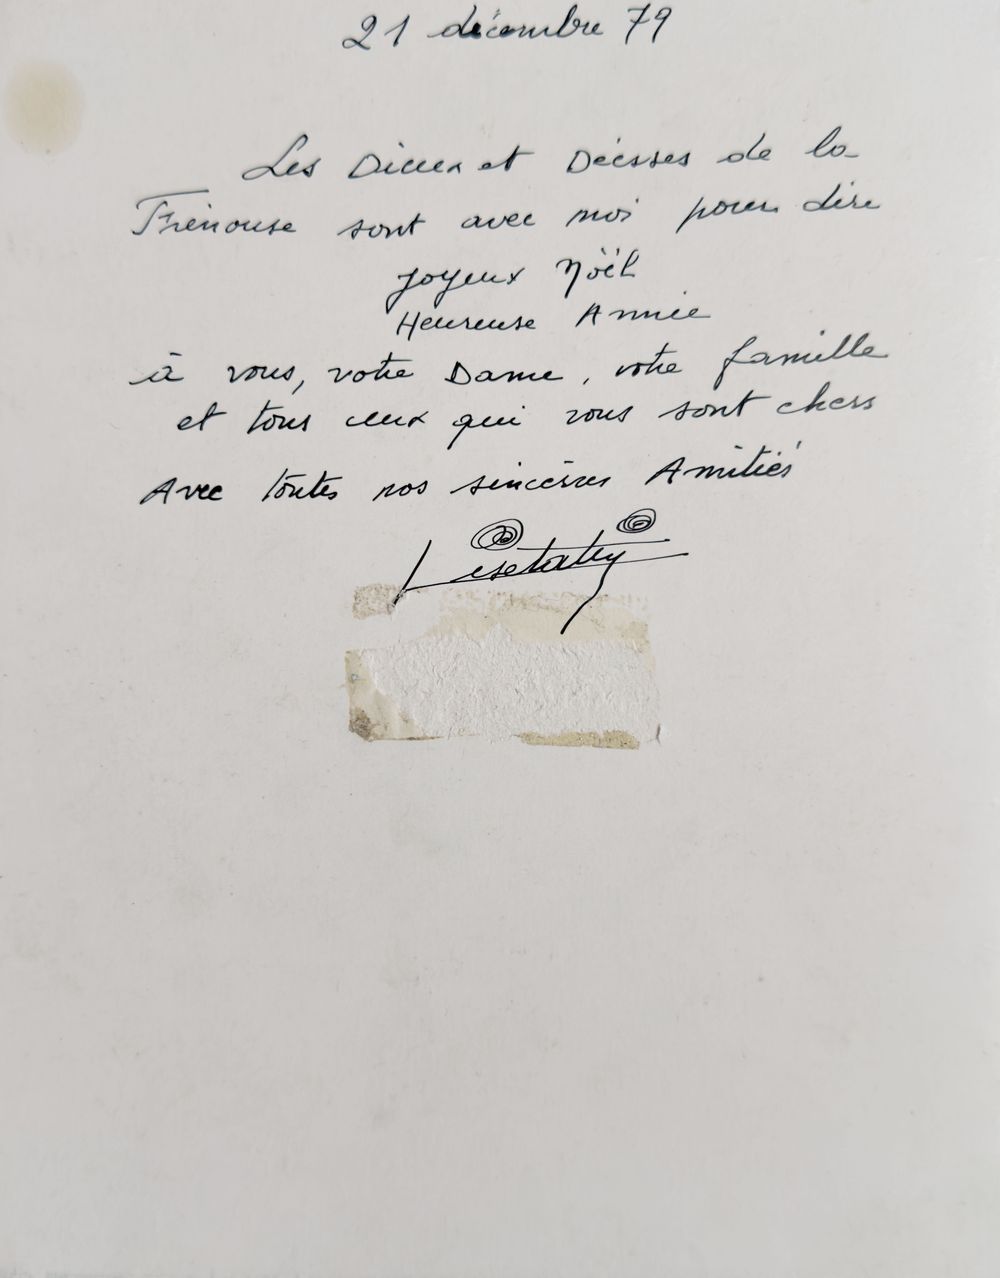 21 décembre 79
Les Dieux et Déesses de la
Frénouse sont avec moi pour dire
Joyeux Noël
Heureuse Année
à vous, votre Dame, votre famille
et tous ceux qui vous sont chers
Avec toutes nos sincères Amitiés